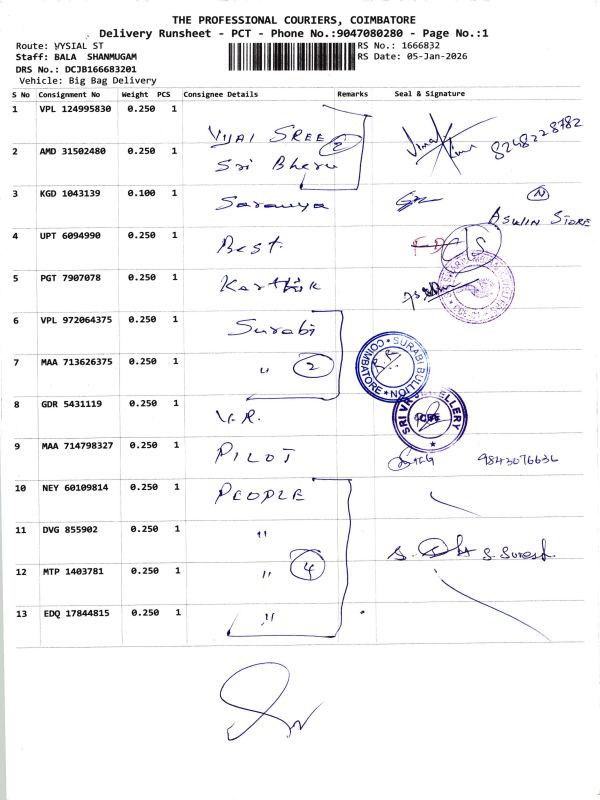 THE PROFESSIONAL COURIERS, COIMBATORE
Delivery Runsheet - PCT - Phone No.:9047080280 - Page No.:1
Route: VYSIAL ST
RS No.: 1666832
Staff: BALA SHANMUGAM
RS Date: 05-Jan-2026
DRS No.: DCJB166683201
Vehicle: Big Bag Delivery
S No Consignment No Weight PCS Consignee Details Remarks Seal & Signature
1 VPL 124995830 0.250 1 VIJAI SREE 2
2 AMD 31502480 0.250 1 Sri Bheru 8248228782
3 KGD 1043139 0.100 1 Saranya N
ASWIN STORE
4 UPT 6094990 0.250 1 Best.
5 PGT 7907078 0.250 1 Karthik
6 VPL 972064375 0.250 1 Surabi
SURABI BULLION COIMBATORE
7 MAA 713626375 0.250 1 " 2
8 GDR 5431119 0.250 1 V.R.
SRI VR JEWELLERY CBE
9 MAA 714798327 0.250 1 PILOT 9843076636
10 NEY 60109814 0.250 1 PEOPLE
11 DVG 855902 0.250 1 " S. Suresh
12 MTP 1403781 0.250 1 " 4
13 EDQ 17844815 0.250 1 "